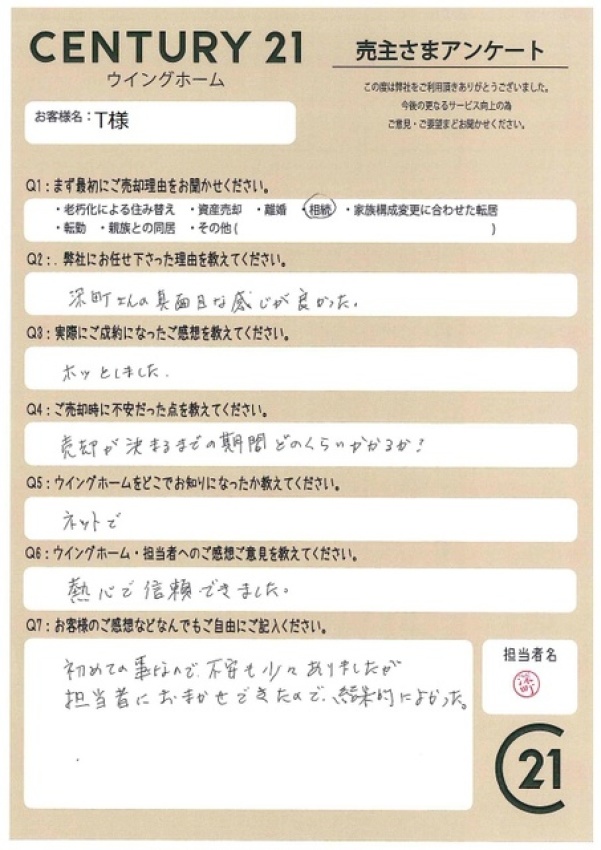 CENTURY 21
ウイングホーム
売主さまアンケート
この度は弊社をご利用頂きありがとうございました。
今後の更なるサービス向上の為
ご意見・ご要望までお聞かせください。
お客様名：T様
Q1：まず最初にご売却理由をお聞かせください。
・老朽化による住み替え ・資産売却 ・離婚 ・相続 ・家族構成変更に合わせた転居
・転勤 ・親族との同居 ・その他( )
Q2：. 弊社にお任せ下さった理由を教えてください。
深町さんの真面目な感じが良かった。
Q3：実際にご成約になったご感想を教えてください。
ホッとしました.
Q4：ご売却時に不安だった点を教えてください。
売却が決まるまでの期間どのくらいかかるか!
Q5：ウイングホームをどこでお知りになったか教えてください。
ネットで
Q6：ウイングホーム・担当者へのご感想ご意見を教えてください。
熱心で信頼できました。
Q7：お客様のご感想などなんでもご自由にご記入ください。
初めての事なので、不安も少々ありましたが
担当者におまかせできたので、結果的によかった。
担当者名
深町
C21